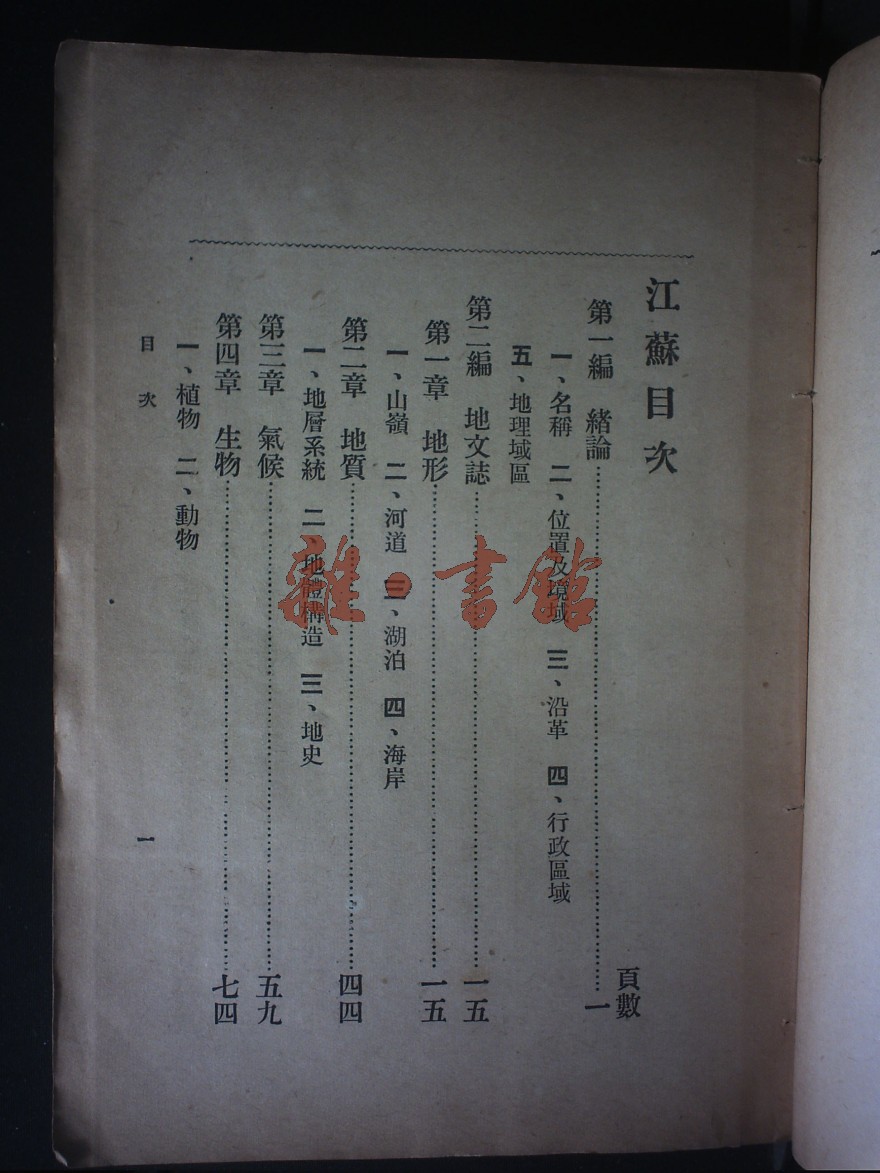 江蘇目次
頁數
第一編　緒論……一
一、名稱　二、位置及境域　三、沿革　四、行政區域
五、地理域區
第二編　地文誌……一五
第一章　地形……一五
一、山嶺　二、河道　三、湖泊　四、海岸
第二章　地質……四四
一、地層系統　二、地體構造　三、地史
第三章　氣候……五九
第四章　生物……七四
一、植物　二、動物
目次
一
雜·書館